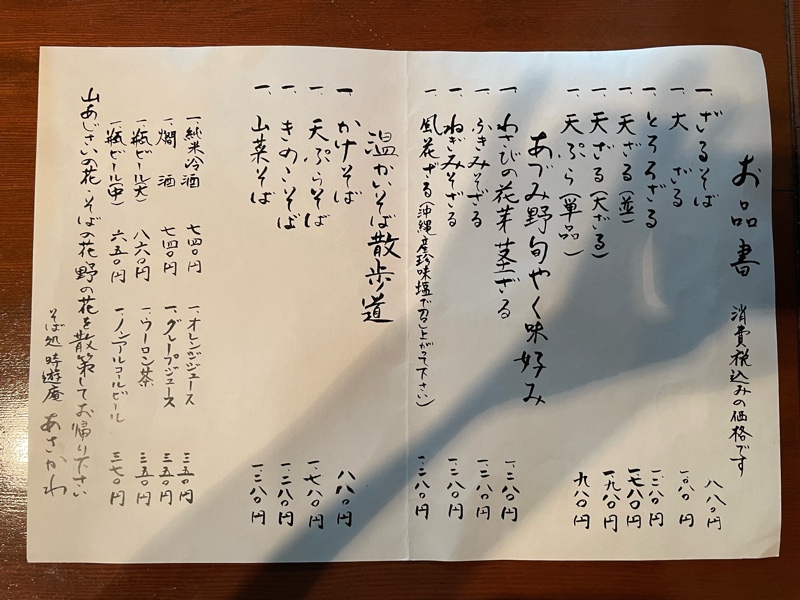 お品書 消費税込みの価格です
一、ざるそば 八八〇円
一、大ざる 一、〇八〇円
一、とろろざる 一、二八〇円
一、天ざる(並) 一、七八〇円
一、天ざる(大ざる) 一、九八〇円
一、天ぷら(単品) 九八〇円
あづみ野旬やく味好み
一、わさびの花芽茎ざる 一、二八〇円
一、ふきみそざる 一、二八〇円
一、ねぎみそざる 一、二八〇円
一、風花ざる(沖縄産珍味塩で召し上がって下さい) 一、二八〇円
温かいそば散歩道
一、かけそば 八八〇円
一、天ぷらそば 一、七八〇円
一、きのこそば 一、二八〇円
一、山菜そば 一、二八〇円
一、純米冷酒 七四〇円
一、燗酒 七四〇円
一、瓶ビール(大) 八六〇円
一、瓶ビール(中) 六五〇円
一、オレンジジュース 三五〇円
一、グレープジュース 三五〇円
一、ウーロン茶 三五〇円
一、ノンアルコールビール 三七〇円
山あじさいの花・そばの花野の花を散策してお帰り下さい
そば処 時遊庵 あさかわ